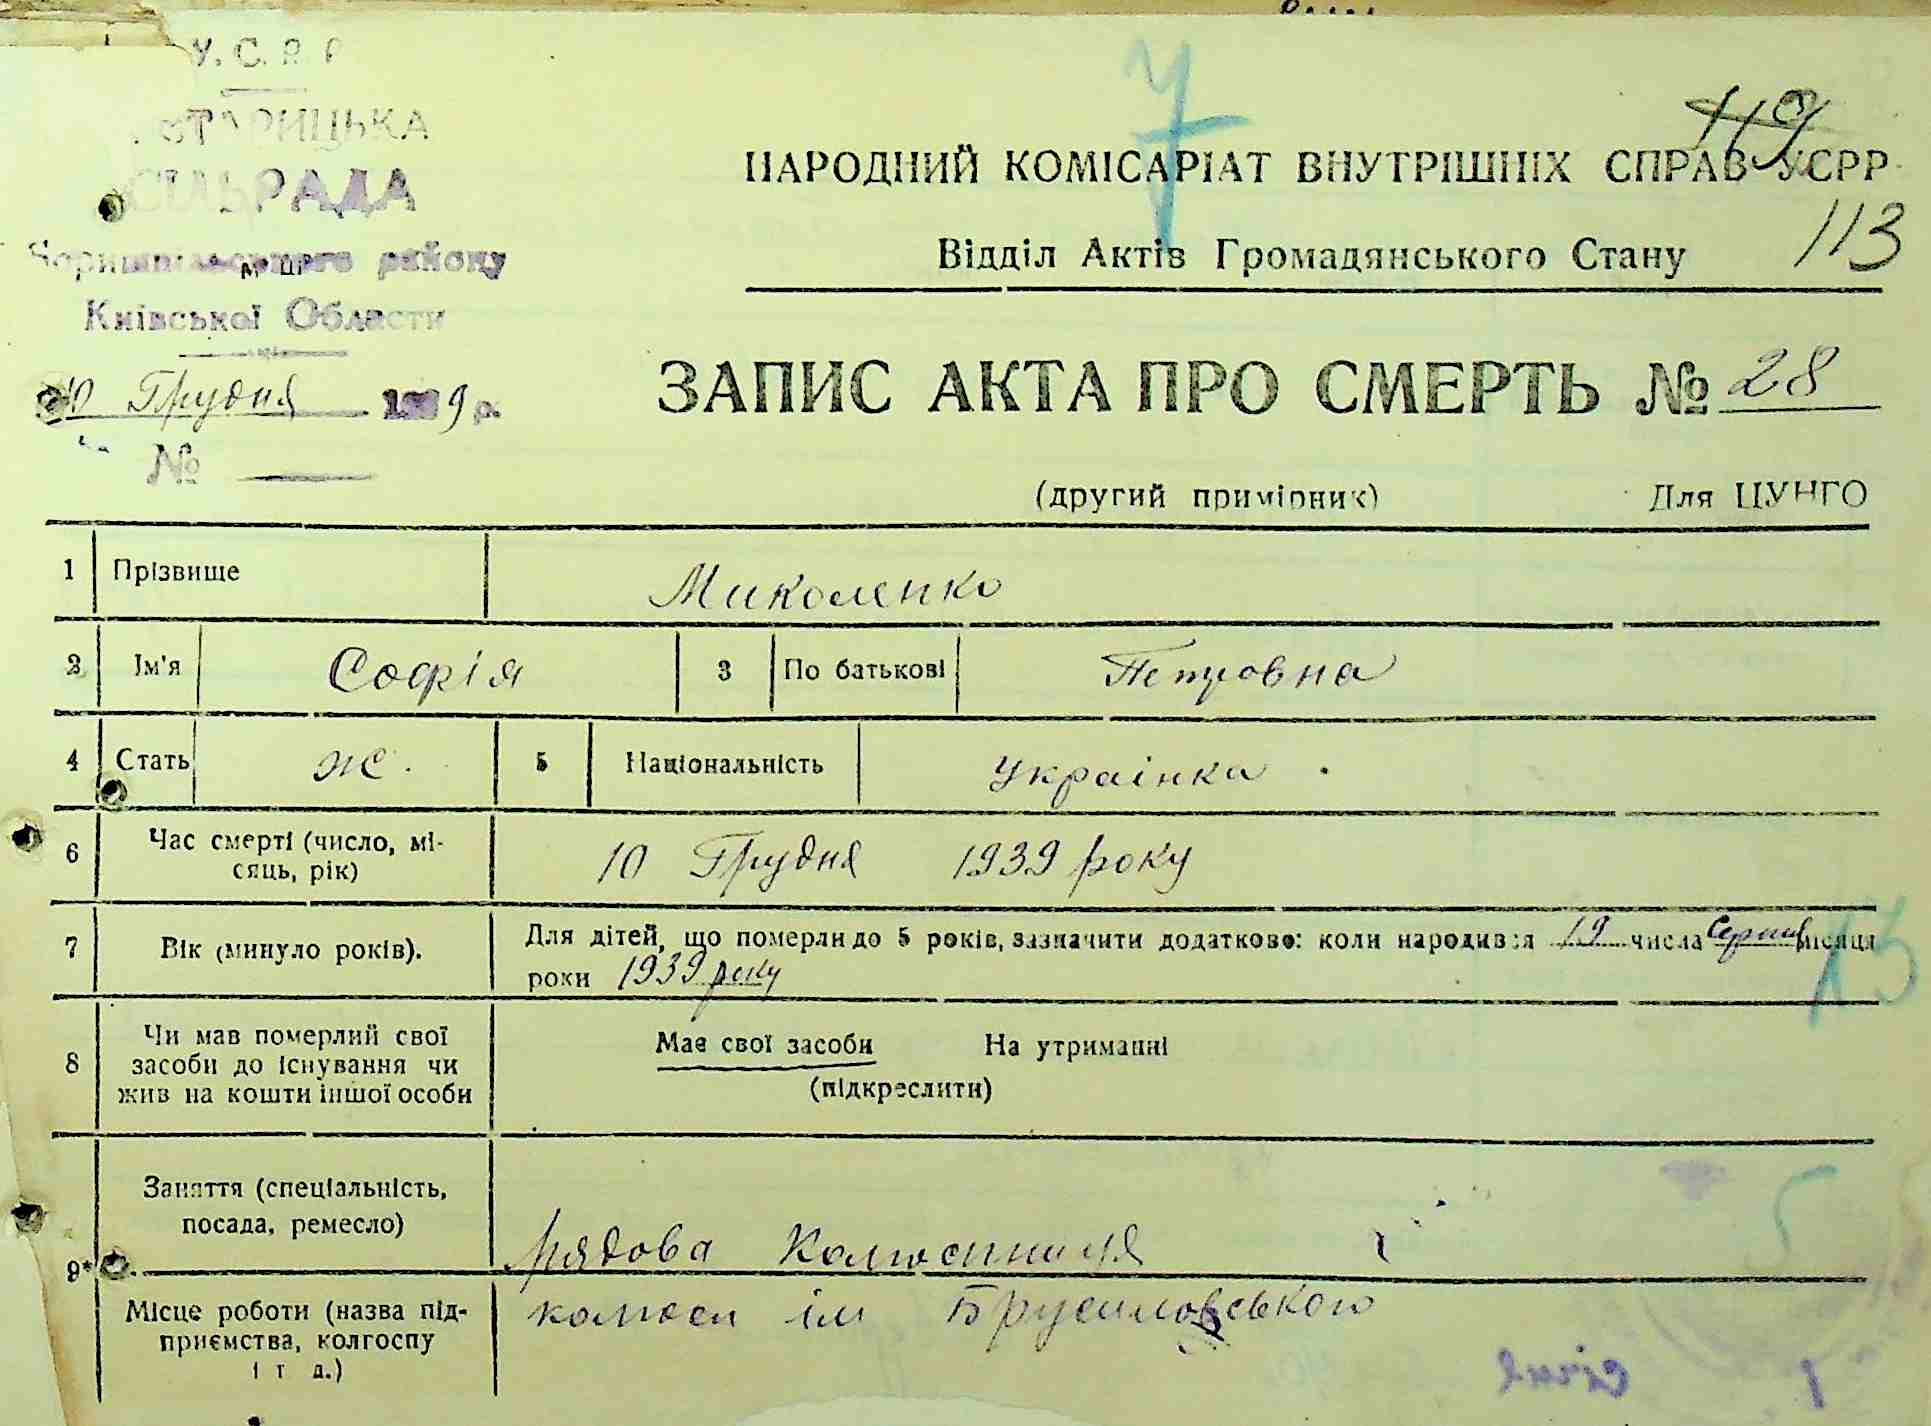 У. С. Р. Р.
СТАРИЦЬКА
СІЛЬРАДА
Бориспільського району
Київської Области
10 Грудня 1939 р.
№
7
119
НАРОДНИЙ КОМІСАРІАТ ВНУТРІШНІХ СПРАВ УСРР
113
Відділ Актів Громадянського Стану
ЗАПИС АКТА ПРО СМЕРТЬ № 28
(другий примірник) Для ЦУНГО
1 Прізвище Миколенко
2 Ім'я Софія 3 По батькові Петровна
4 Стать ж. 5 Національність Українка .
6 Час смерті (число, мі-
сяць, рік) 10 Грудня 1939 року
7 Вік (минуло років). Для дітей, що померли до 5 років, зазначити додатково: коли народився 19 числа Серпня місяця
роки 1939 року
13
8 Чи мав померлий свої
засоби до існування чи
жив на кошти іншої особи
Має свої засоби На утриманні
(підкреслити)
9* Заняття (спеціальність,
посада, ремесло)
рядова Колгоспниця
5
Місце роботи (назва під-
приємства, колгоспу
і т д.)
колгосп ім Брусиловського